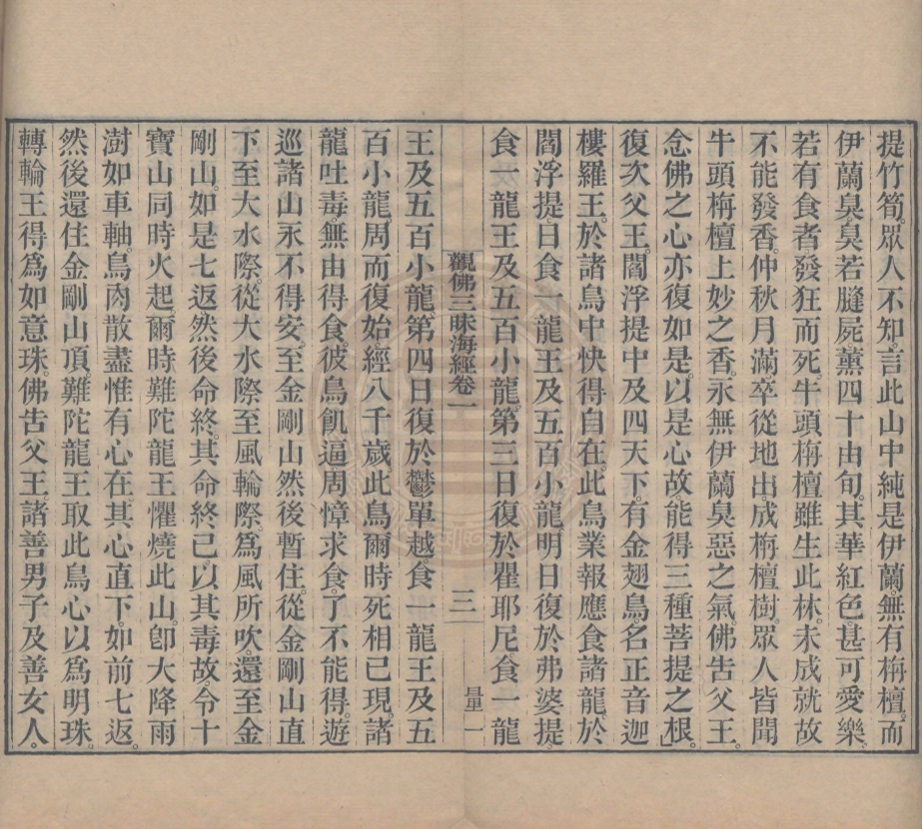 提竹筍。眾人不知。言此山中純是伊蘭。無有栴檀。而
伊蘭臭。臭若膖屍。薰四十由旬。其華紅色。甚可愛樂。
若有食者。發狂而死。牛頭栴檀雖生此林。未成就故。
不能發香。仲秋月滿。卒從地出。成栴檀樹。眾人皆聞
牛頭栴檀上妙之香。永無伊蘭臭惡之氣。佛吿父王。
念佛之心亦復如是。以是心故。能得三種菩提之根。
復次父王。閻浮提中及四天下。有金翅鳥。名正音迦
樓羅王。於諸鳥中快得自在。此鳥業報應食諸龍。於
閻浮提日食一龍王及五百小龍。明日復於弗婆提。
食一龍王及五百小龍。第三日復於瞿耶尼。食一龍
觀佛三昧海經卷一 三 量一
王及五百小龍。第四日復於鬱單越。食一龍王及五
百小龍。周而復始。經八千歲。此鳥爾時死相已現。諸
龍吐毒。無由得食。彼鳥飢逼。周慞求食。了不能得。遊
巡諸山。永不得安。至金剛山。然後暫住。從金剛山直
下至大水際。從大水際至風輪際。為風所吹。還至金
剛山。如是七返。然後命終。其命終已。以其毒故。令十
寶山同時火起。爾時難陀龍王懼燒此山。卽大降雨
澍如車軸。鳥肉散盡。惟有心在。其心直下。如前七返。
然後還住金剛山頂。難陀龍王取此鳥心。以為明珠。
轉輪王得為如意珠。佛吿父王。諸善男子及善女人。